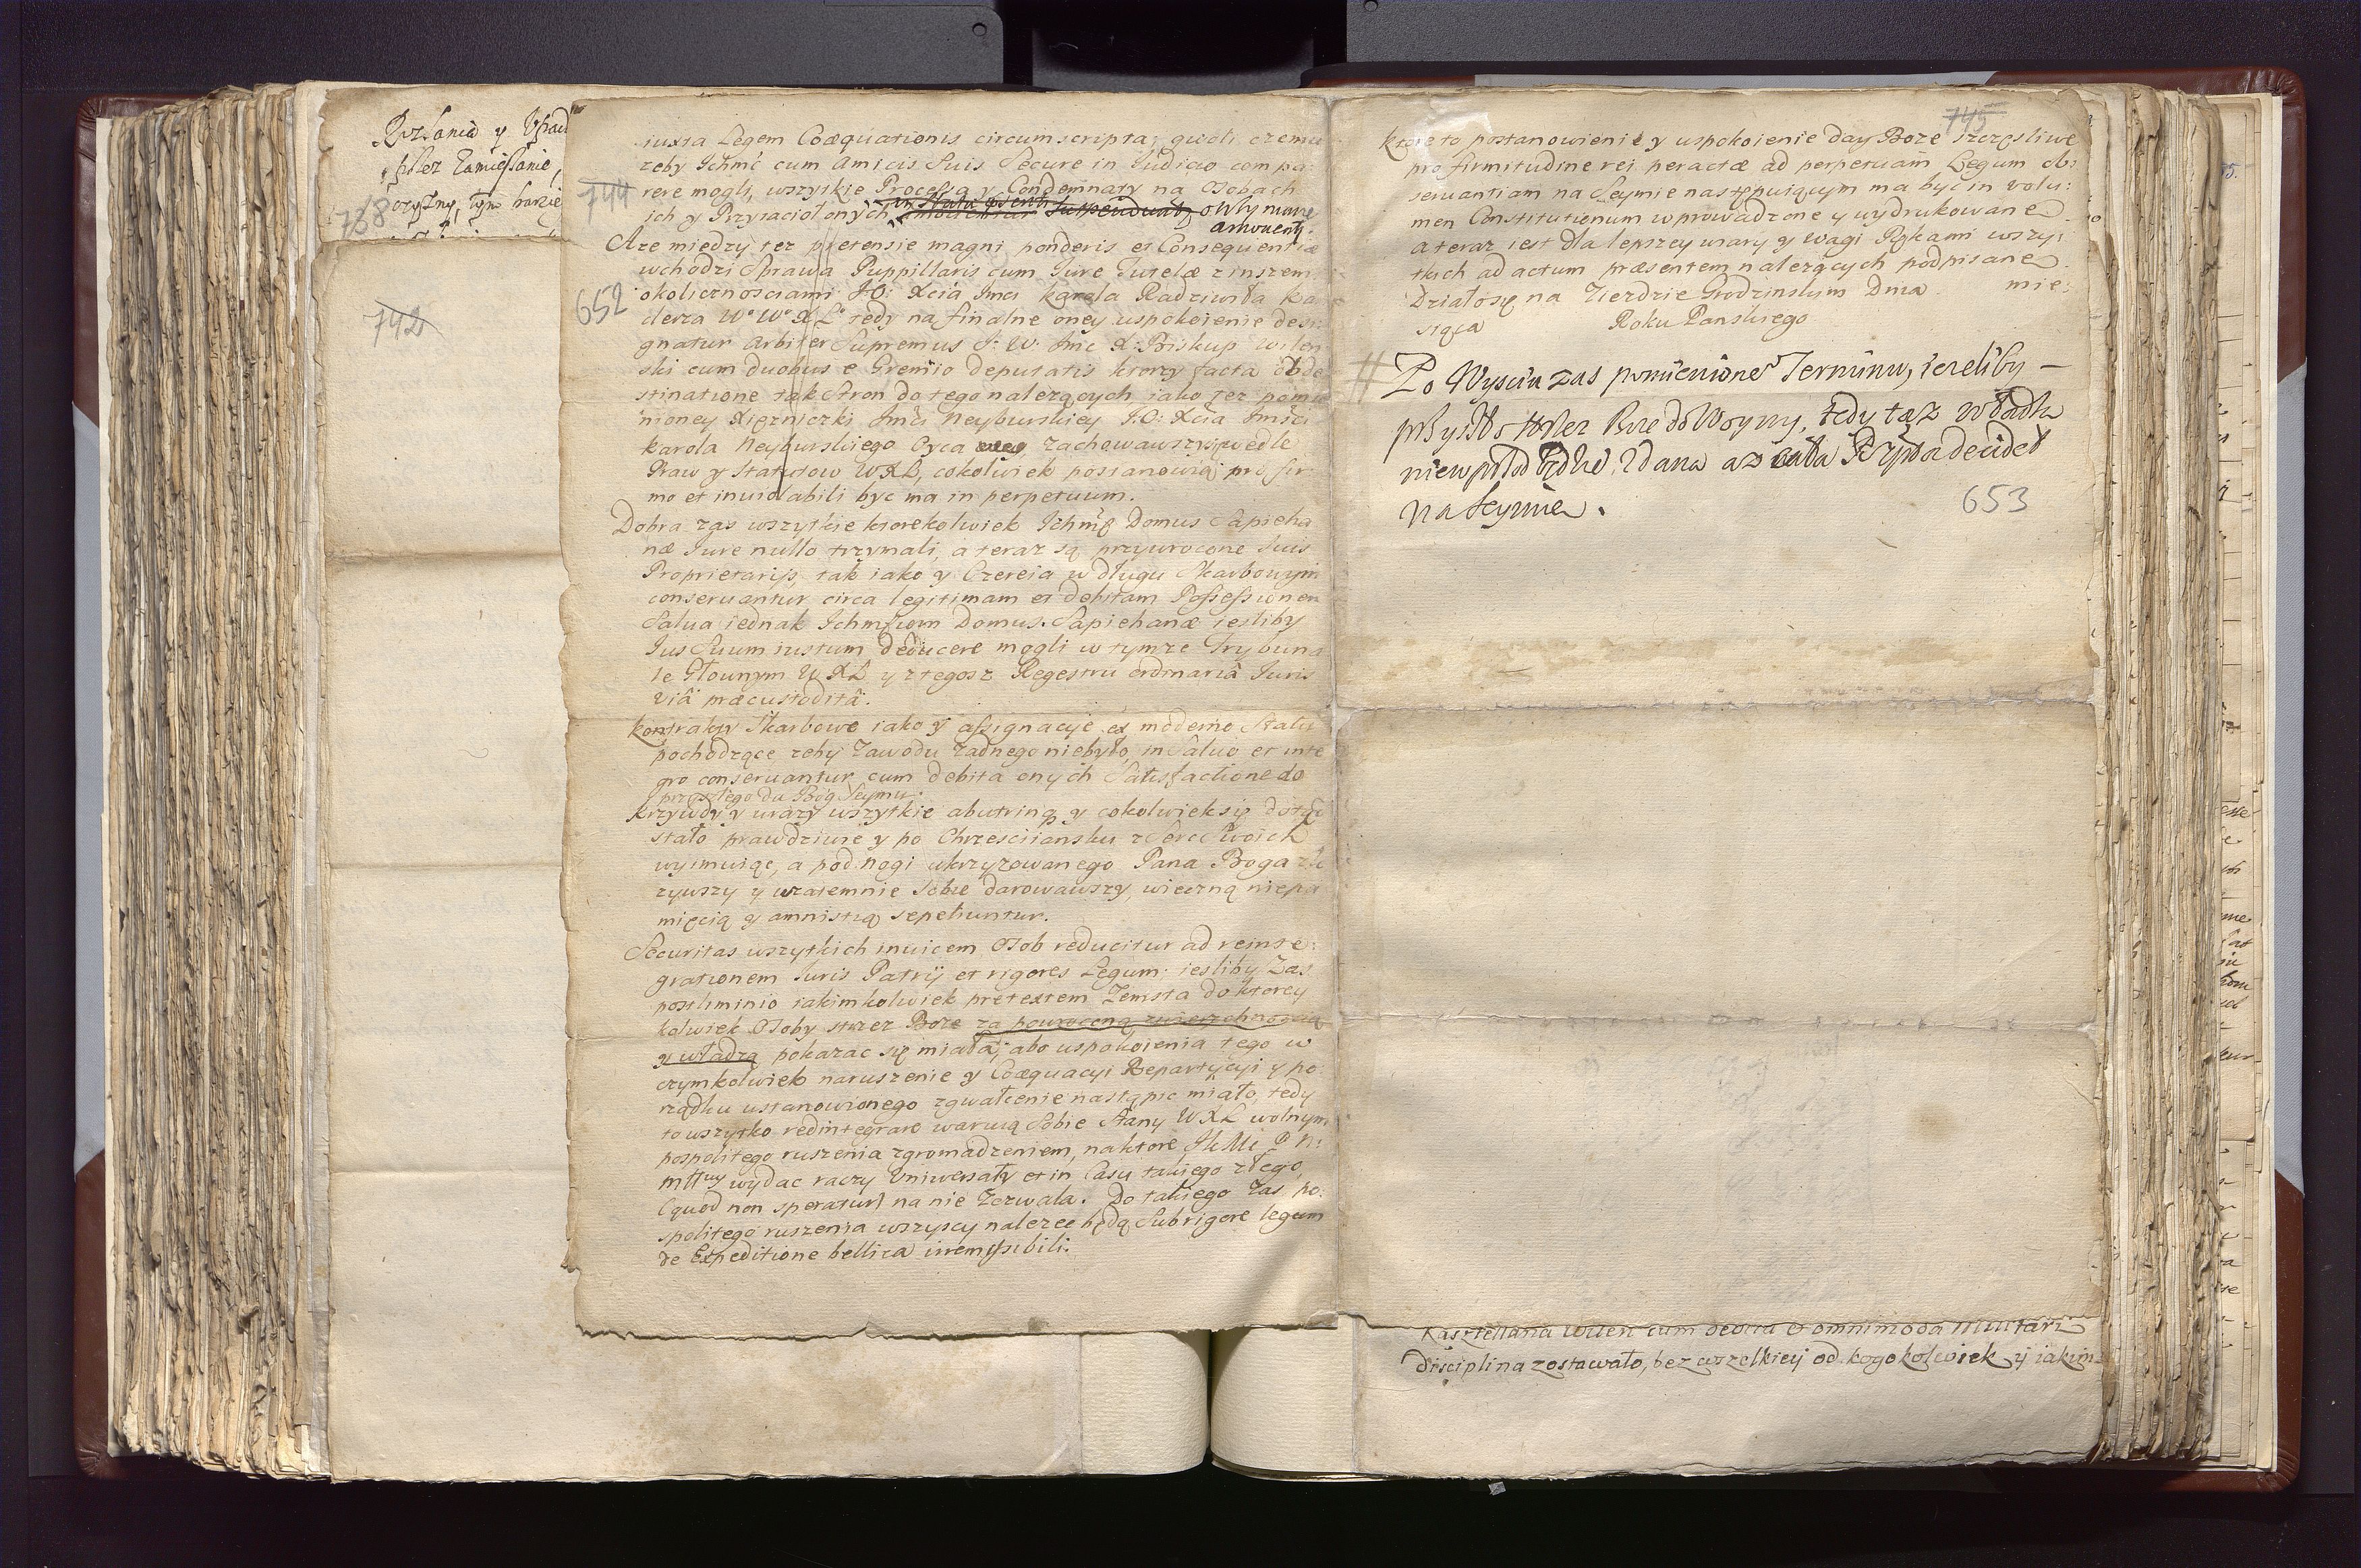 Rozlania y
przez Zamięszanie,
oyczyzny, tym barzie
738
742
744
652
iuxta Legem Coæquationis circumscripta; quoli czemu
zeby Ichmć cum Amicis Suis Secure in Iudicio compa
rere mogli, wszytkie Processa y Condemnaty na Osobach
ich y Przyiacioł onych
amouenty.
Aze między tez pretensie magni ponderis et Consequentiæ
wchodzi Sprawa Puppillaris cum Iure Tutelæ z inszemi
okolicznosciami J:O: Xcia Jmci Karola Radziwiła Kan
clerza Wo Wo X Lo tedy na finalne oney uspokoienie desi
gnatur Arbiter Supremus J: W: Jmc X: Biskup Wilen
ski cum duobus e Gremio deputatis ktorzy facta obde
stinatione tak Stron do tego nalezących iako tez pomie
nioney Xięzniczki Jmci Neyburskiey J:O: Xcia Jmści
Karola Neyburskiego Oyca zachowawszy się wedle
Praw y Statutow WXL, cokolwiek postanowią pro fir
mo et inviolabili byc ma in perpetuum.
Dobra zas wszytkie ktorekolwiek Ichmć Domus Sapieha
næ Iure nullo trzymali, a teraz są przywrocone Suis
Proprietarijs, tak iako y Czereia w długu Skarbowym
conseruantur circa legitimam et debitam Possessionem
Salua iednak Ichmściom Domus Sapiehanæ iesliby
Ius Suum iustum deducere mogli w tymze Trybuna
le Głownym WXL y z tegosz Regestru ordinariâ Iuris
viâ præcustoditâ.
Kontrakty Skarbowe iako y assignacyie ex moderno Statu
pochodzące zeby Zawodu Zadnego niebyło, in Saluo et inte
gro conseruantur cum debita onych Satisfactione do
przyszłego da Bóg Seymu.
Krzywdy y urazy wszytkie abutrinq y cokolwiek się dotąd
stało prawdziwie y po Chrzesciiansku z Serc Swoich
wyimuiąc, a pod nogi ukrzyzowanego Pana Boga zło
zywszy y wzaiemnie Sobie darowawszy, wieczną niepa
mięcią y amnistią sepeliuntur.
Securitas wszytkich inuicem Osob reducitur ad reinte:
grationem Iuris Patrij et rigores Legum: iesliby Zas
postliminio iakimkolwiek pretextem Zemsta do ktorey
kolwiek Osoby strzez Boze za powroconą zwierzchnością
y władzą pokazac się miała, abo uspokoienia tego w
czymkolwiek naruszenie y Coæquacyi Repartycyi y po:
rządku ustanowionego zgwałcenie nastąpic miało, tedy
to wszytko redintegrare waruią Sobie Stany WXL wolnym
pospolitego ruszenia zgromadzeniem, na ktore JKMć P. N:
Młłwy wydac raczy Uniwersały et in Casu takiego złego,
(quod non speratur) na nie Zezwala. Do takiego Zas po:
spolitego ruszenia wszyscy nalezec będą Sub rigore legum
de Expeditione bellica irremissibili.
745
Ktore to postanowienie y uspokoienie day Boze szczęsliwe
pro firmitudine rei peractæ ad perpetuam Legum ob:
seruantiam na Seymie następuiącym ma być in Volu:
men Constitutionum wprowadzone y wydrukowane.
A teraz iest dla lepszey wiary y Wagi Rękami wszy:
tkich ad actum præsentem nalezących podpisane.
Działosię na Zierdzie Grodzinskym Dnia mie:
siąca Roku Panskiego
# Po Wysciu zas pomienione Terminu, iezeliby —
przyszło strzez Boze do Woyny, tedy taz władza
niewprzod Ẏdzie, Zdana az cała Rzptta decidet
na Seymie.
653
Kasztellana Wilen cum debita et omnimoda Militari
disciplina zostawało, bez wszelkiey od kogokolwiek y iakim